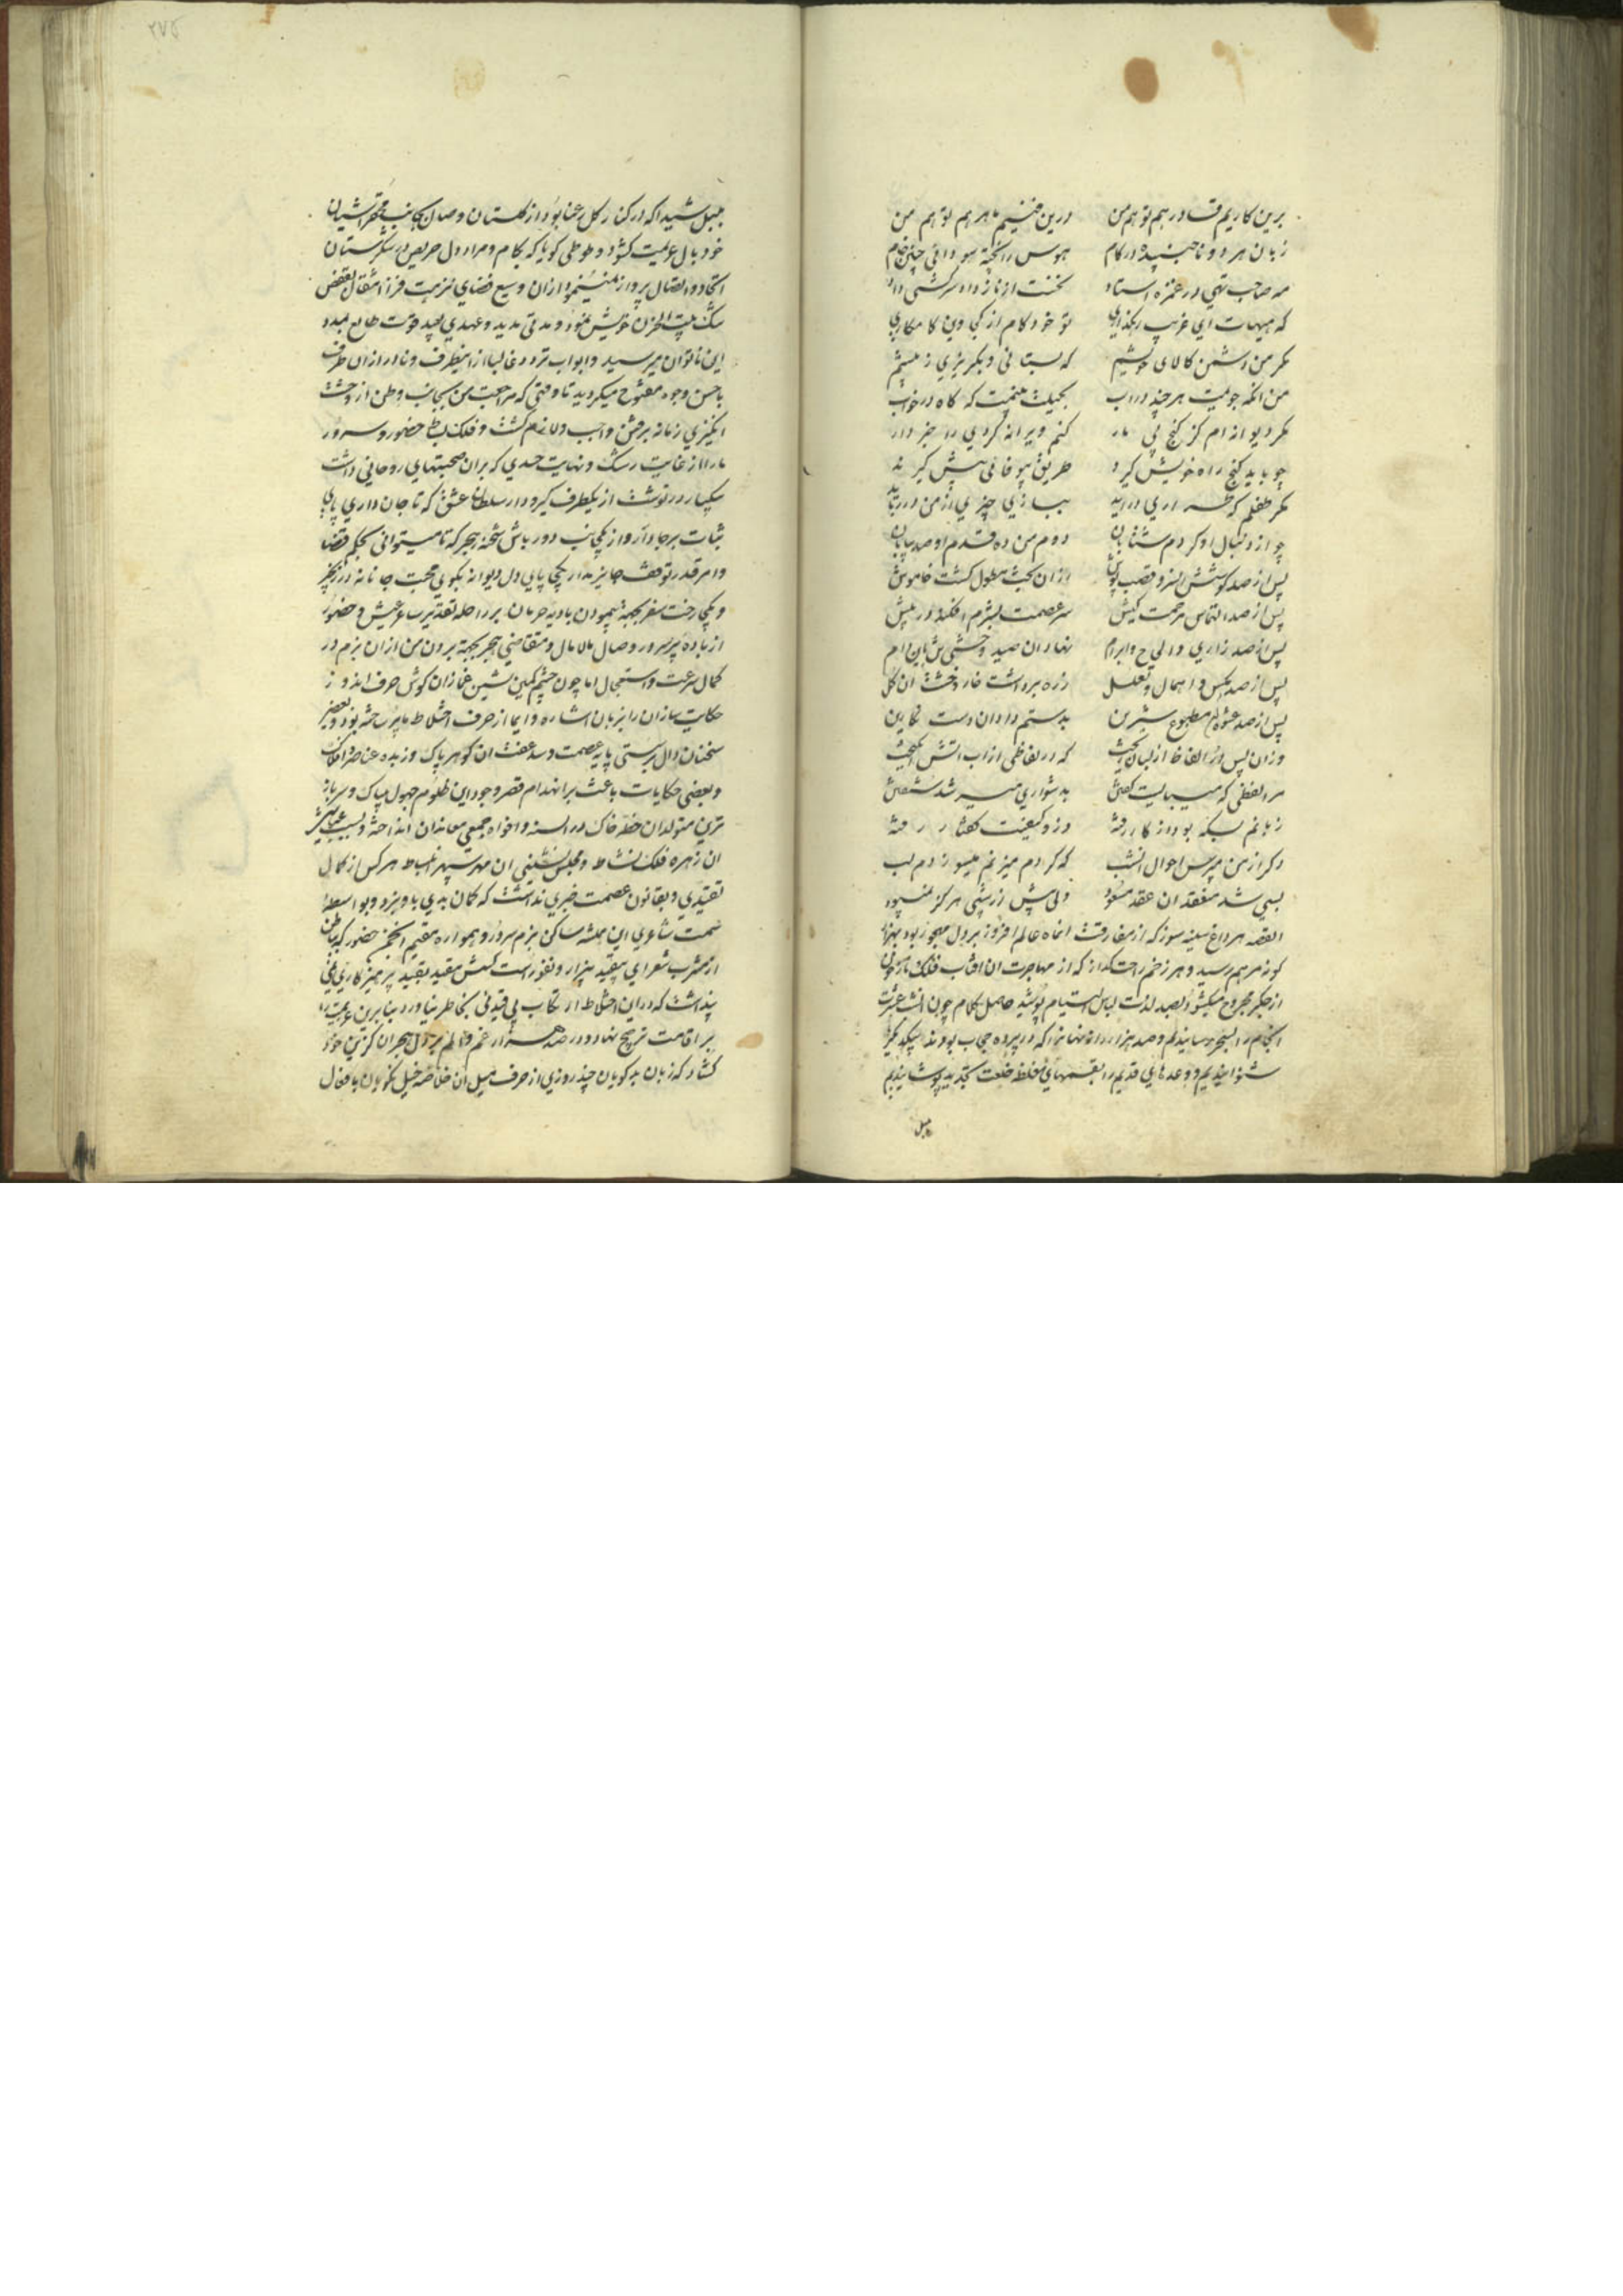 برین کاریم قادر هم تو هم من
درین فنیم ماهر هم تو هم من
زبان هر دو ناجنبیده در کام
هوس را پخته سودائی چنین خام
مه صاحب تهی در غمزه استاد
نخست از ناز داد سرکشی داد
که هیهات ای غریب
تو خود کام از کجا وین کامکاری
مگر من دشمن کالای خویشم
که بستانی و بگریزی ز پیشم
من آنکه جویمت هر چند در آب
بجنگ نیمت که گاه در خواب
مگر دیوانه ام کز گنج بی مار
کنم ویرانه کردی را خبردار
چو باید گنج راه خویش گیرد
طریق بیوفائی پیش گیرد
مگر طفلم که
ببازی چیزی از من در رباید
چو از دنبال او کردم شتابان
دوم من ده قدم او صد بیابان
پس از صد کوشش
ازان بحث مطول گشت خاموش
پس از صد التماس مرحمت کیش
سر عصمت بشرم افکند در پیش
پس از صد زاری و الحاح و ابرام
نهاد آن صید وحشی
پس از صد و اهمال و تعلل
ز ره برداشت خار وحشت آن گل
پس از صد عشوه مطبوع شیرین
بدستم داد آن دست نگارین
وزان پس در الفاظ از لبان ریخت
که در لفاظی از آب آتش انگیخت
مرا لفظی که میبایست گفتن
بدشواری میسر شد شنفتن
زبانم بسکه بود از کار رفته
وزو کیفیت گفتار رفته
دگر از من مپرس احوال آنشب
که گر دم میزنم میسوزدم لب
بسی شد منعقد آن عقد معهود
ولی پیش زرشکی هرگز نمیبود
القصه هر داغ سینه سوز که از مفارقت آنماه عالم افروز بر دل مهجور بود
کوز مرهم رسید و هر زخم راحت گداز که از مهاجرت آن آفتاب فلک ناز
از جگر مجروح میکشود بصد لذت لباس التیام پوشید حاصل کلام چون آنشب عشرت
انجام را بسحر رسانیدیم و صد هزار راز نهانرا که در پرده حجاب بودند بیکدیگر
شنوانیدیم و وعدهای قدیم را بقسمهای مغلظ خلعت تجدید پوشانیدیم
بلبل
بلبل شیدا که در کنار گل رعنا بود از گلستان وصال بجانب محقر آشیان
خود بال عزیمت گشود و طوطی گویا که بکام و مراد دل حریص در شکرستان
اتحاد و اتصال پرواز مینمود ازان وسیع فضای نزهت فزا انتقال بقفص
تنگ بیت الحزن خویش نمود و مدتی مدید و عهدی بعید قوت طالع بمدد
این ناتوان میرسید و ابواب تردد غالبا ازینطرف و نادرا ازان طرف
باحسن وجوه مفتوح میگردید تا وقتی که مراجعت من بجانب وطن از وحشت
انگیزی زمانه پرفتن واجب و لازم گشت و فلک بساط حضور و سرور
ما را از غایت رشک و نهایت حسدی که بران صحبتهای روحانی داشت
بیکبار در نوشت از یکطرف گیر و دار سلطان عشق که تا جان داری پای
ثبات برجا دار و از یکجانب دور باش شحنه هجر که تا میتوانی بحکم قضا
و امر قدر توقف جایز مدار یکجا پای دل دیوانه بکوی محبت جانانه در زنجیر
و یکجا رخت سفر بجهة پیمودن بادیه حرمان بر راحله تقدیر عیش و حضور
از باده پر سرور وصال مالامال و متقاضی هجر بجهة بردن من ازان بزم در
کمال سرعت و استعجال اما چون چشم کمین نشین غمازان گوش حرف اندوز
حکایت سازان را بزبان اشاره و ایما از حرف اختلاط ما پر ساخته بود و بعضی
سخنان دال بر پستی پایه عصمت و سد عفت آن گوهر پاک و زبده عناصر و افلاک
و بعضی حکایات باعث بر انهدام قصر وجود این ظلوم جهول بیباک و سرباز
ترین متولدان خطه خاک در السنه و افواه جمعی معاندان انداخته و بسبب
آن زهره فلک نشاط و مجلس نشینی آن مه سپهر انبساط هر کس از کمال
تقیدی و بقانون عصمت خبری نداشت که گمان بدی باو نبرد و بواسطه
تهمت شاعری این همیشه ساکن بزم سرور و همواره مقیم انجمن حضور که بباطن
از مشرب شعرای بیقید بیزار و نفور است کیش مقید بقید پرهیزکاری
پنداشت که در این اختلاط ارتکاب بی قیدئی بخاطر نیاورد بنابرین عزیمت را
بر اقامت ترجیح نهاد و در صد هزار غم و الم بر دل هجران گزین خود
گشاد که زبان بدگویان چند روزی از حرف میل آن خلاصه خیل نکویان بافعال